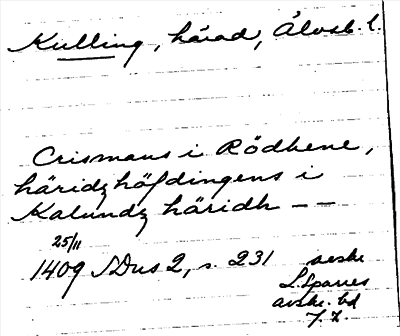 Kulling, härad, Älvsb. l.
Crismans i Rödhene,
häridzhöfdingens i
Kalundz häridh – –
25/11
1409 SDns 2, s. 231 avskr
L. Sparres
avskr. bd